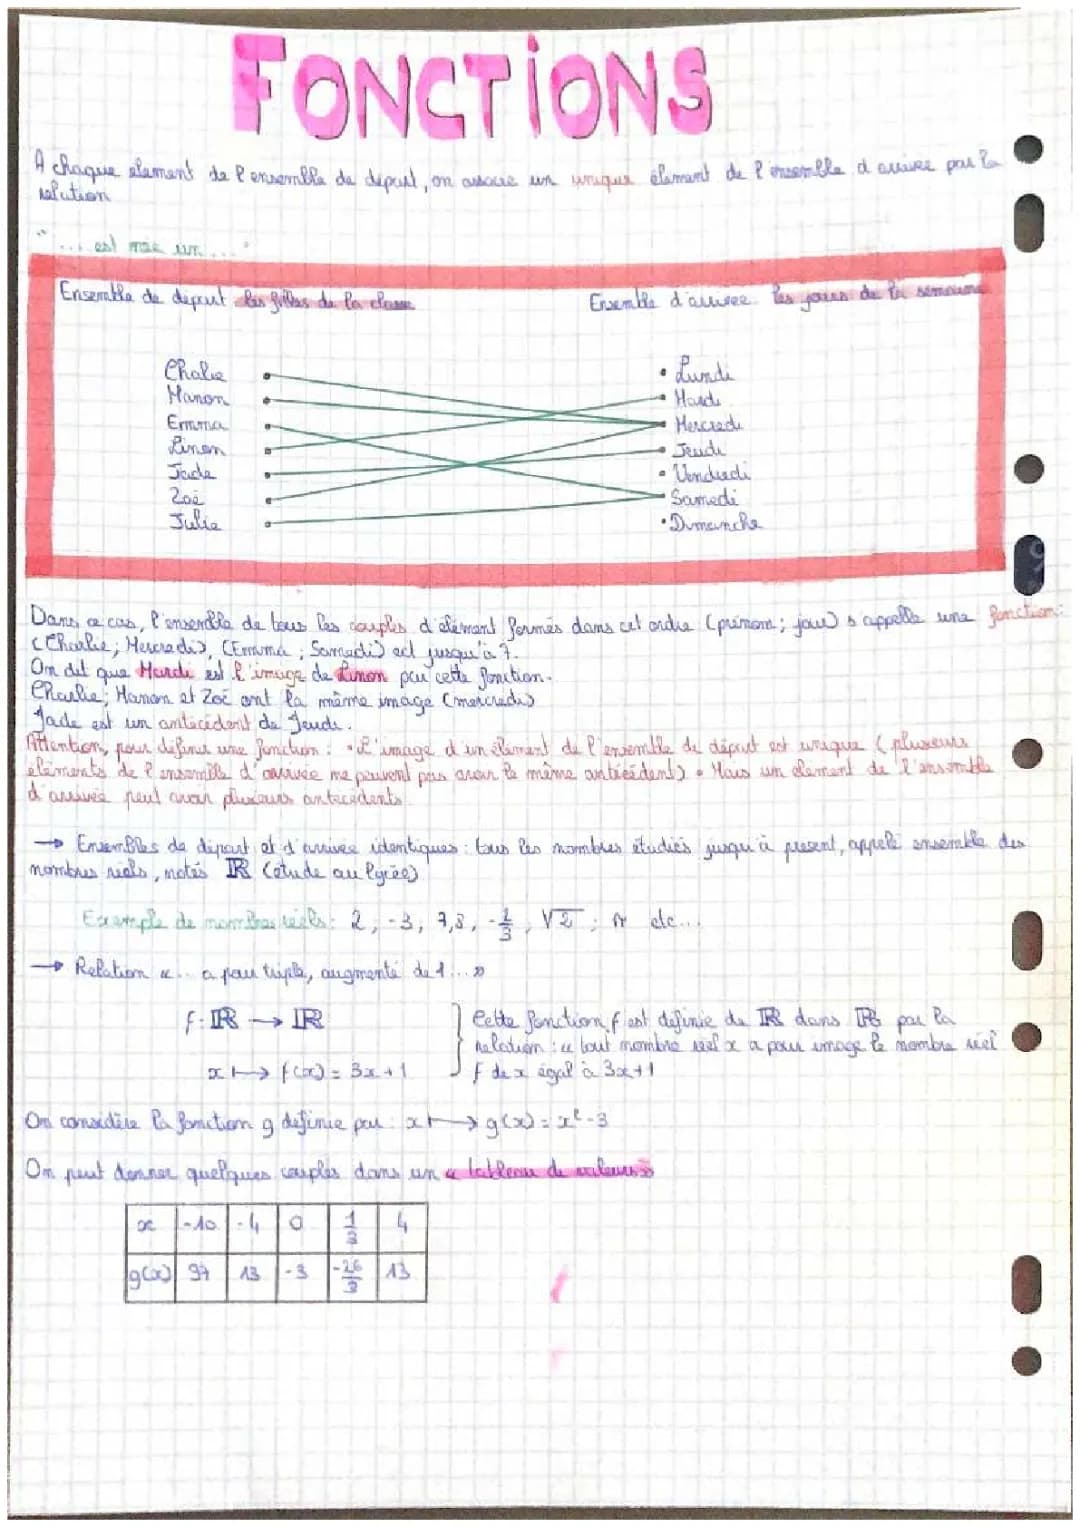 FONCTIONS
A chaque élement de l'ensemble de départ, on associe un unique élement de l'ensemble d'arrivée par la
relution
"... est née un ..."
Ensemble de départ les filles de la classe
Ensemble d'arrivee. les jours de la semaine
Chalie
Manon
Emma
Linon
Jade
Zoé
Julie
• Lundi
• Mardi
Mercredi
• Jeudi
• Vendredi
Samedi
• Dimanche
Dans ce cas, l'ensemble de tous les couples d'élément formés dans cet ordre (prénom; jour) s'appelle une fonction:
(Charlie; Mercredi), (Emma; Samedi) ect jusqu'à 7.
On dit que Mardi est l'image de Linon par cette fonction.
Charlie; Manon et Zoé ont la même image (mercredi)
Jade est un antécédent de Jeudi.
Attention, pour définir une fonction : • L'image d'un élément de l'ensemble de départ est unique (plusieurs
éléments de l'ensemble d'arrivée ne peuvent pas avoir le même antécédent) • Mais un élement de l'ensemble
d'arrivée peut avoir plusieurs antécédents
→ Ensembles de départ et d'arrivée identiques : tous les nombres étudiés jusqu'à présent, appelé ensemble des
nombres réels, notés ℝ (étude au lycée)
Exemple de nombres réels: 2 ; -3 ; 7,8 , -2/3 , √2 ; π etc...
→ Relation «... a pour triple, augmenté de 1 ...»
f: ℝ → ℝ
x ↦ f(x) = 3x + 1
Cette fonction f est définie de ℝ dans ℝ par la
relation : « tout nombre réel x a pour image le nombre réel
f de x égal à 3x+1
On considère la fonction g définie par : x ↦ g(x) = x² - 3
On peut donner quelques couples dans un « tableau de valeurs »
x -10 -4 0 1/3 4
g(x) 97 13 -3 -26/9 13